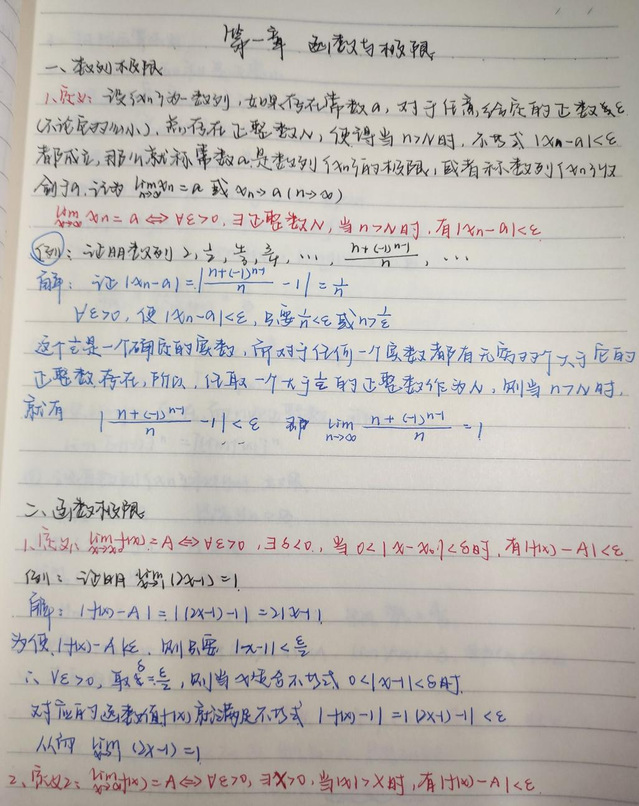 第一章 函数与极限
一、数列极限
1、定义: 设{xn}为一数列,如果存在常数a,对于任意给定的正数ε
(不论它多么小),总存在正整数N,使得当n>N时,不等式|xn-a|<ε
都成立,那么就称常数a是数列{xn}的极限,或者称数列{xn}收
敛于a,记为 lim n→∞ xn=a 或 xn→a(n→∞)
lim n→∞ xn=a⇔∀ε>0,∃正整数N,当n>N时,有|xn-a|<ε
例: 证明数列 2, 1/2, 4/3, 3/4, …, (n+(-1)^(n-1))/n, …
解: 证 |xn-a|=|(n+(-1)^(n-1))/n -1|=1/n
∀ε>0, 使|xn-a|<ε,只要1/n<ε或n>1/ε
这个1/ε是一个确定的实数,而对于任何一个实数都有无穷多个大于它的
正整数存在,所以,任取一个大于1/ε的正整数作为N,则当n>N时,
就有 |(n+(-1)^(n-1))/n -1|<ε 即 lim n→∞ (n+(-1)^(n-1))/n =1
二、函数极限
1、定义: lim x→x₀ f(x)=A⇔∀ε>0,∃δ<0,当0<|x-x₀|<δ时,有|f(x)-A|<ε
例: 证明 (2x-1)=1
解: |f(x)-A|=|(2x-1)-1|=2|x-1|
为使|f(x)-A|<ε,则只要 |x-1|<ε/2
∴ ∀ε>0,取δ=ε/2,则当x适合不等式 0<|x-1|<δ时
对应的函数值f(x)就满足不等式 |f(x)-1|=|(2x-1)-1|<ε
从而 lim x→1 (2x-1)=1
2、定义2: lim x→∞ f(x)=A⇔∀ε>0,∃X>0,当|x|>X时,有|f(x)-A|<ε